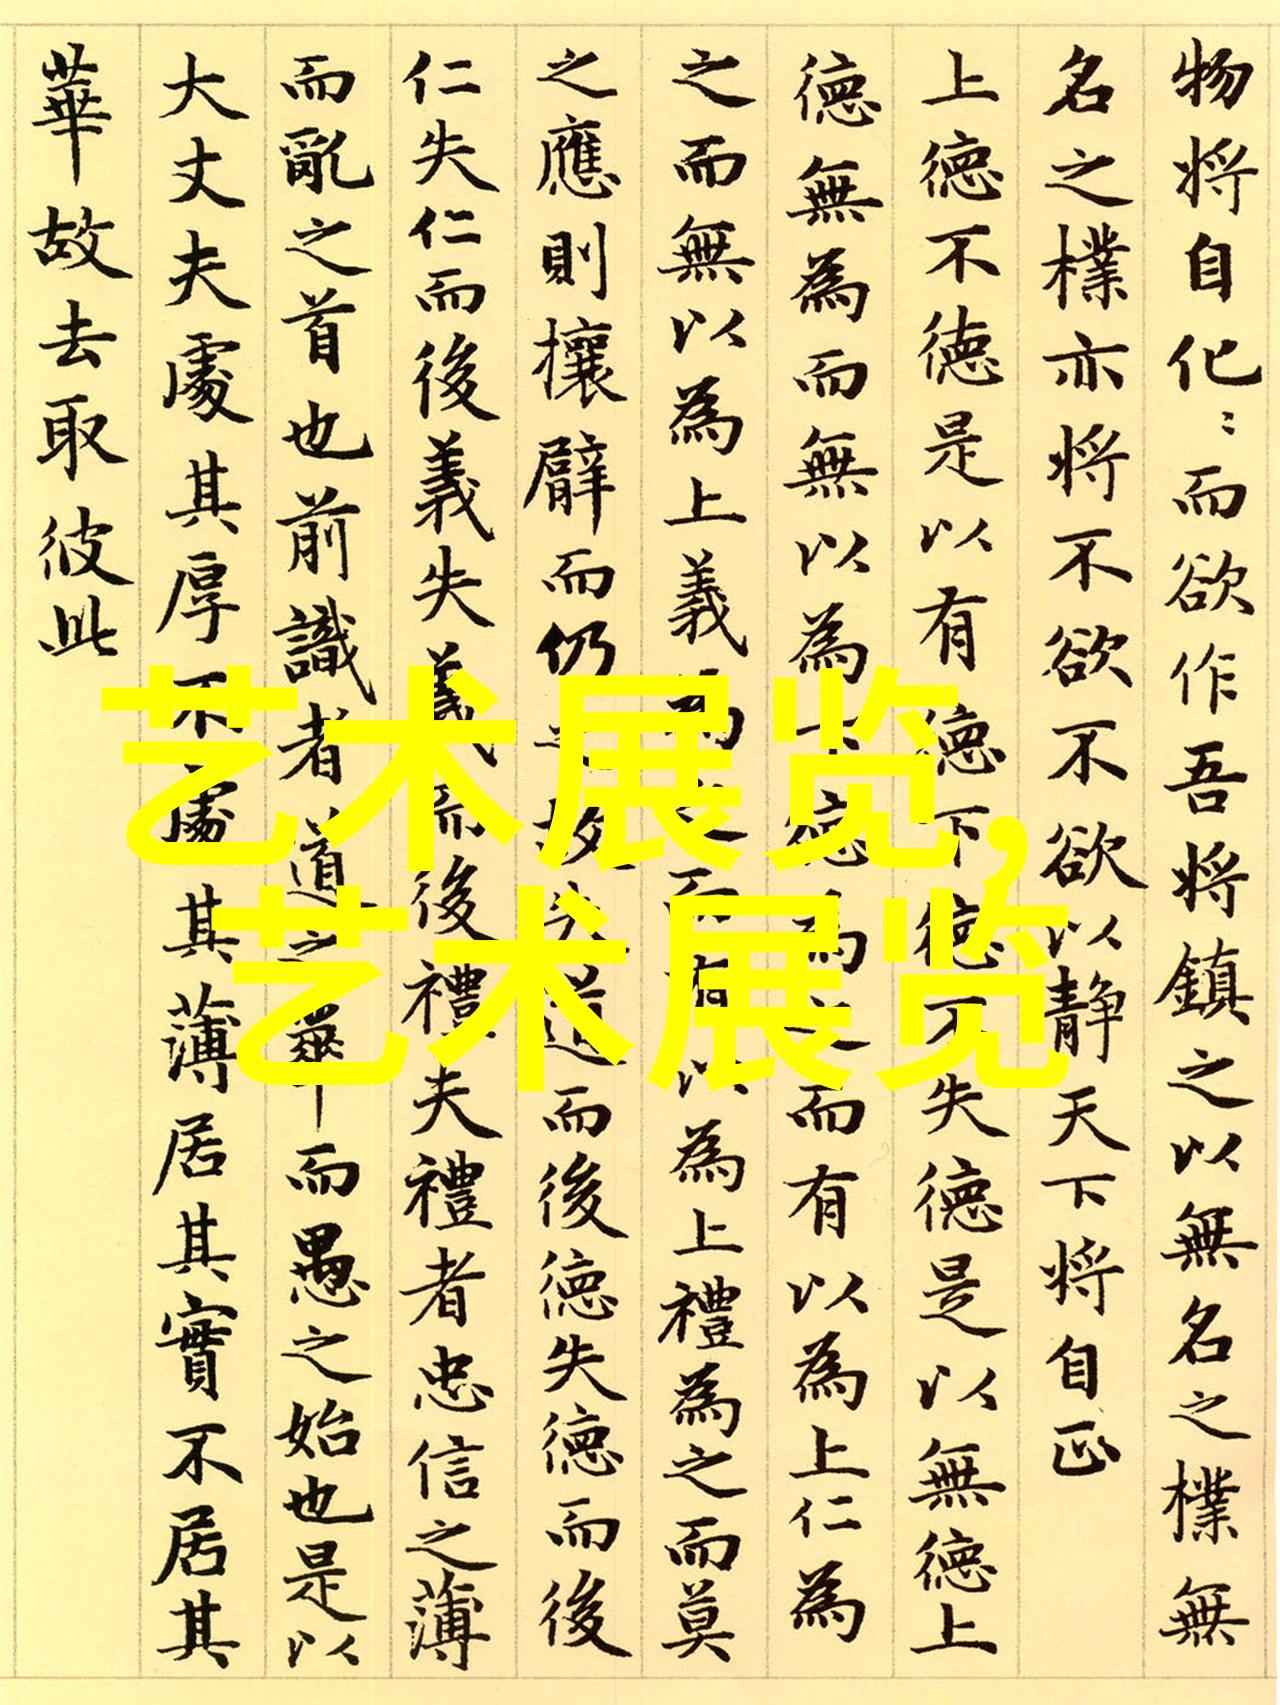 物将自化〻而欲作吾将鎮之以無名之樸無
名之樸亦将不欲不欲以静天下将自正
上德不德是以有德下德不失德是以無德上
德無為而無以為下德為之而有以為上仁為
之而無以為上義為之而有以為上禮為之而莫
之應則攘臂而仍之故失道而後德失德而後
仁失仁而後義失義而後禮夫禮者忠信之薄
而亂之首也前識者道之華而愚之始也是以
大丈夫處其厚不處其薄居其實不居其
華故去取彼此
艺术展览,
艺术展览